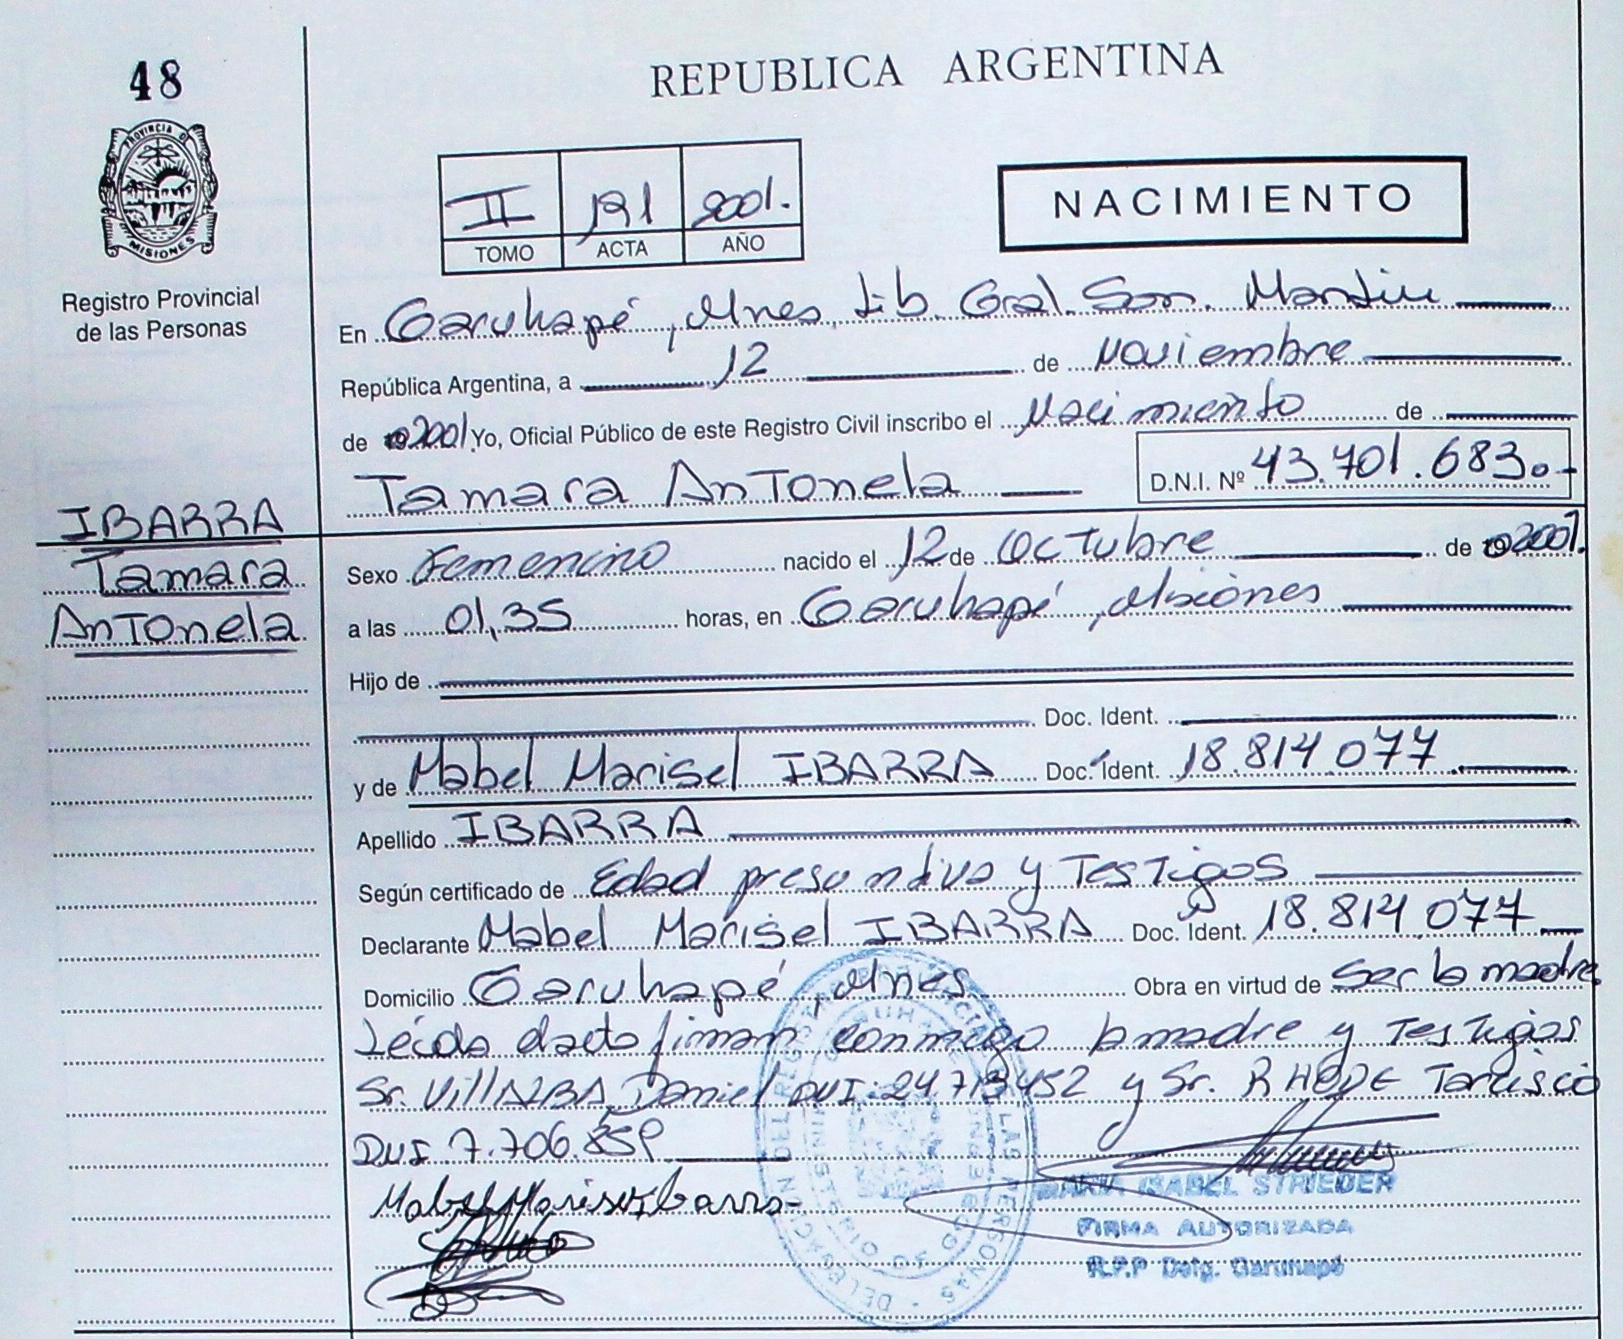 48
REPUBLICA ARGENTINA
PROVINCIA DE
MISIONES
Registro Provincial
de las Personas
II 191 2001.
TOMO ACTA AÑO
NACIMIENTO
En Garuhapé, Mnes, Lib. Gral. San. Martin
República Argentina, a 12 de Noviembre
de 2001 Yo, Oficial Público de este Registro Civil inscribo el Nacimiento de
Tamara Antonela D.N.I. Nº 43.701.683.-
IBARRA
Tamara
Antonela
Sexo Femenino nacido el 12 de Octubre de 2001.
a las 01,35 horas, en Garuhapé, Misiones
Hijo de
Doc. Ident.
y de Mabel Marisel IBARRA Doc. Ident. 18.814.077
Apellido IBARRA
Según certificado de Edad presuntiva y Testigos
Declarante Mabel Marisel IBARRA Doc. Ident. 18.814.077
Domicilio Garuhapé, Mnes Obra en virtud de Ser la madre
Leída el acto firman conmigo la madre y Testigos
Sr. VillALBA, Daniel DNI: 24.713.452 y Sr. RHODE Tarcisio
DNI 7.706.859
Mabel Marisel Ibarra
MARIA ISABEL STRIEDER
FIRMA AUTORIZADA
R.P.P Deleg. Garuhapé